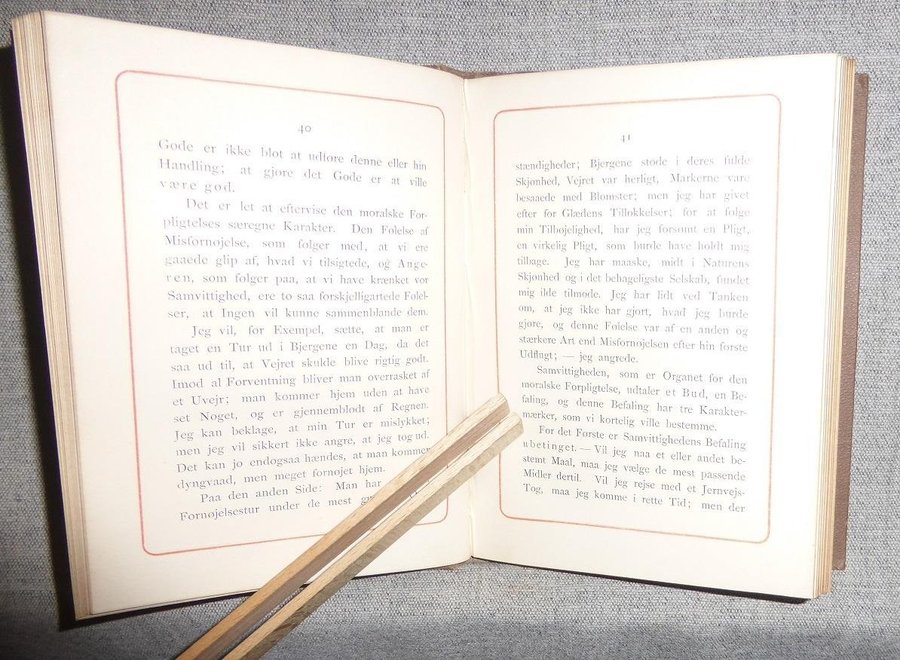 40
Gode er ikke blot at udføre denne eller hin
Handling; at gjøre det Gode er at ville
være god.
Det er let at eftervise den moralske For-
pligtelses særegne Karakter. Den Følelse af
Misfornøjelse, som følger med, at vi ere
gaaede glip af, hvad vi tilsigtede, og Ange-
ren, som følger paa, at vi have krænket vor
Samvittighed, ere to saa forskjelligartede Følel-
ser, at Ingen vil kunne sammenblande dem.
Jeg vil, for Exempel, sætte, at man er
taget en Tur ud i Bjergene en Dag, da det
saa ud til, at Vejret skulde blive rigtig godt.
Imod al Forventning bliver man overrasket af
et Uvejr; man kommer hjem uden at have
set Noget, og er gjennemblødt af Regnen.
Jeg kan beklage, at min Tur er mislykket;
men jeg vil sikkert ikke angre, at jeg tog ud.
Det kan jo endogsaa hændes, at man kommer
dyngvaad, men meget fornøjet hjem.
Paa den anden Side: Man har
Fornøjelsestur under de mest
41
stændigheder; Bjergene stode i deres fulde
Skjønhed, Vejret var herligt, Markerne vare
besaaede med Blomster; men jeg har givet
efter for Glædens Tillokkelser; for at følge
min Tilbøjelighed, har jeg forsømt en Pligt,
en virkelig Pligt, som burde have holdt mig
tilbage. Jeg har maaske, midt i Naturens
Skjønhed og i det behageligste Selskab, fundet
mig ilde tilmode. Jeg har lidt ved Tanken
om, at jeg ikke har gjort, hvad jeg burde
gjøre, og denne Følelse var af en anden og
stærkere Art end Misfornøjelsen efter hin første
Udflugt; — jeg angrede.
Samvittigheden, som er Organet for den
moralske Forpligtelse, udtaler et Bud, en Be-
faling, og denne Befaling har tre Karakter-
mærker, som vi kortelig ville bestemme.
For det Første er Samvittighedens Befaling
ubetinget. — Vil jeg naa et eller andet be-
stemt Maal, maa jeg vælge de mest passende
Midler dertil. Vil jeg rejse med et Jernvejs-
Tog, maa jeg komme i rette Tid; men der